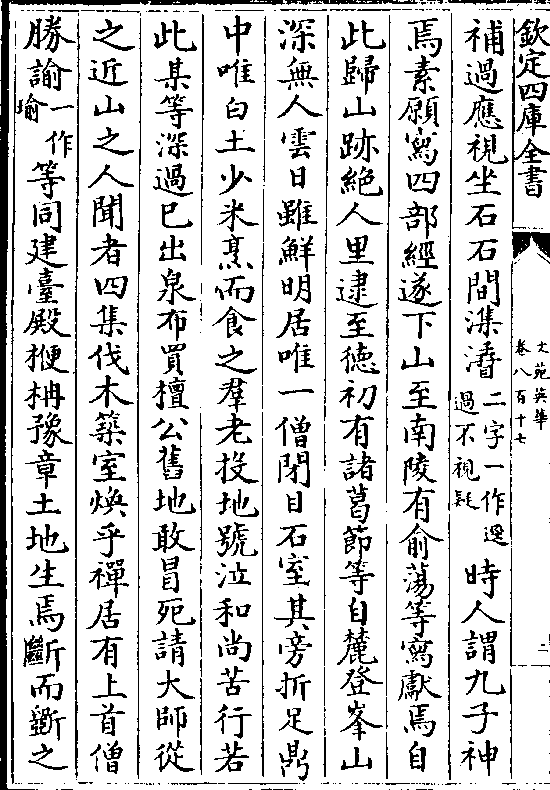 欽定四庫全書
文苑英華
卷八百十七
二
補過應視坐石石間潗㵫二字一作選過不視疑時人謂九子神
焉素願寫四部經遂下山至南陵有俞蕩等寫獻焉自
此歸山跡絕人里逮至德初有諸葛節等自麓登峯山
深無人雲日雖鮮明居唯一僧閉目石室其旁折足鼎
中唯白土少米烹而食之羣老投地號泣和尚苦行若
此某等深過已出泉布買檀公舊地敢冒死請大師從
之近山之人聞者四集伐木築室煥乎禪居有上首僧
勝諭一作瑜等同建臺殿楩柟豫章土地生焉斷而斲之